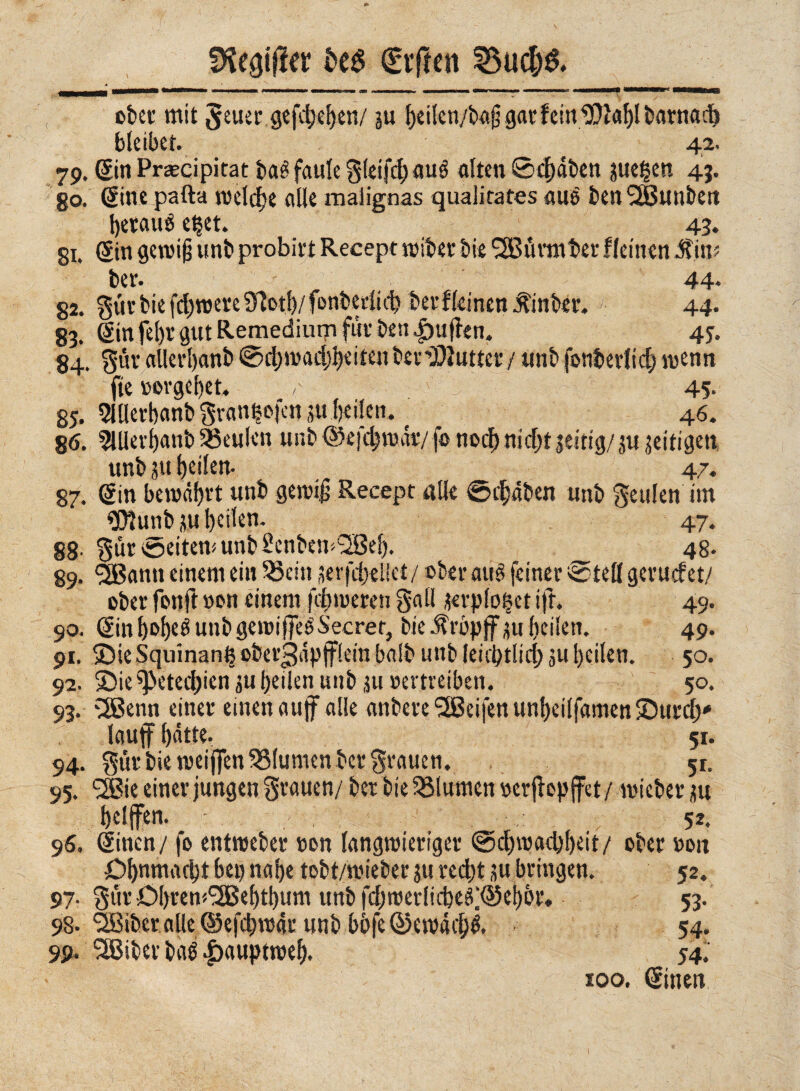 Register des Ersten Buchs.
oder mit Feuer geschehen/ zu heilen/daß gar kein Mahl darnach
bleibet. 42.
79. Ein Præcipitat das faule Fleisch aus alten Schäden zuetzen 43.
80. Eine pasta welche alle malignas qualitates aus den Wunden
heraus etzet. 43.
81. Ein gewiß und probirt Recept wider die Würmb der kleinen Kin-
der. 44.
82. Für die schwere Noth/ sonderlich der kleinen Kinder. 44.
83. Ein sehr gut Remedium für den Husten. 45.
84. Für allerhand Schwachheiten der Mutter/ und sonderlich wenn
sie vorgehet. 45.
85. Allerhand Frantzosen zu heilen. 46.
86. Allerhand Beulen und Geschwär/ so noch nicht zeitig/ zu zeitigen
und zu heilen. 47.
87. Ein bewährt und gewiß Recept alle Schäden und Feulen im
Mund zu heilen. 47.
88. Für Seiten- und Lenden-Weh. 48.
89. Wann einem ein Bein zerschellet/ oder aus seiner Stell gerucket/
oder sonst von einem schweren Fall zerplotzet ist. 49.
90. Ein hohes und gewisses Secret, die Kröpff zu heilen. 49.
91. Die Squinantz oder Zäpfflein bald und leichtlich zu heilen. 50.
92. Die Petechien zu heilen und zu vertreiben. 50.
93. Wenn einer einen auff alle andere Weisen unheilsamen Durch-
lauff hätte. 51.
94. Für die weissen Blumen der Frauen. 51.
95. Wie einer jungen Frauen/ der die Blumen verstopffet/ wieder zu
helffen. 52.
96. Einen/ so entweder von langwieriger Schwachheit/ oder von
Ohnmacht bey nahe todt/wieder zu recht zu bringen. 52.
97. Für Ohren-Wehthum und schwerliches Gehör. 53.
98. Wider alle Geschwär und böse Gewächs. 54.
99. Wider das Hauptweh. 54.
100. Einen